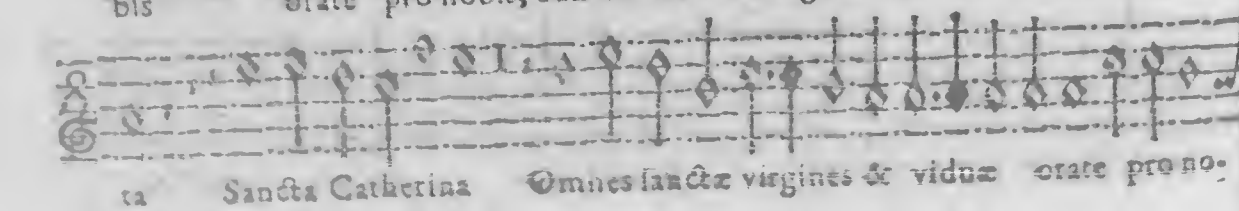 bis orate pro nobis,
ta Sancta Catherina Omnes sanctæ virgines & viduæ orate pro no-